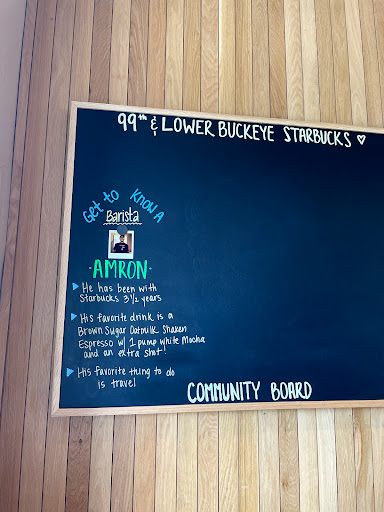 99th & LOWER BUCKEYE STARBUCKS ♡
Get to Know A
Barista
·AMRON·
▶ He has been with
Starbucks 3½ years
▶ His favorite drink is a
Brown Sugar Oatmilk Shaken
Espresso w/ 1 pump white Mocha
and an extra shot!
▶ His favorite thing to do
is travel
COMMUNITY BOARD